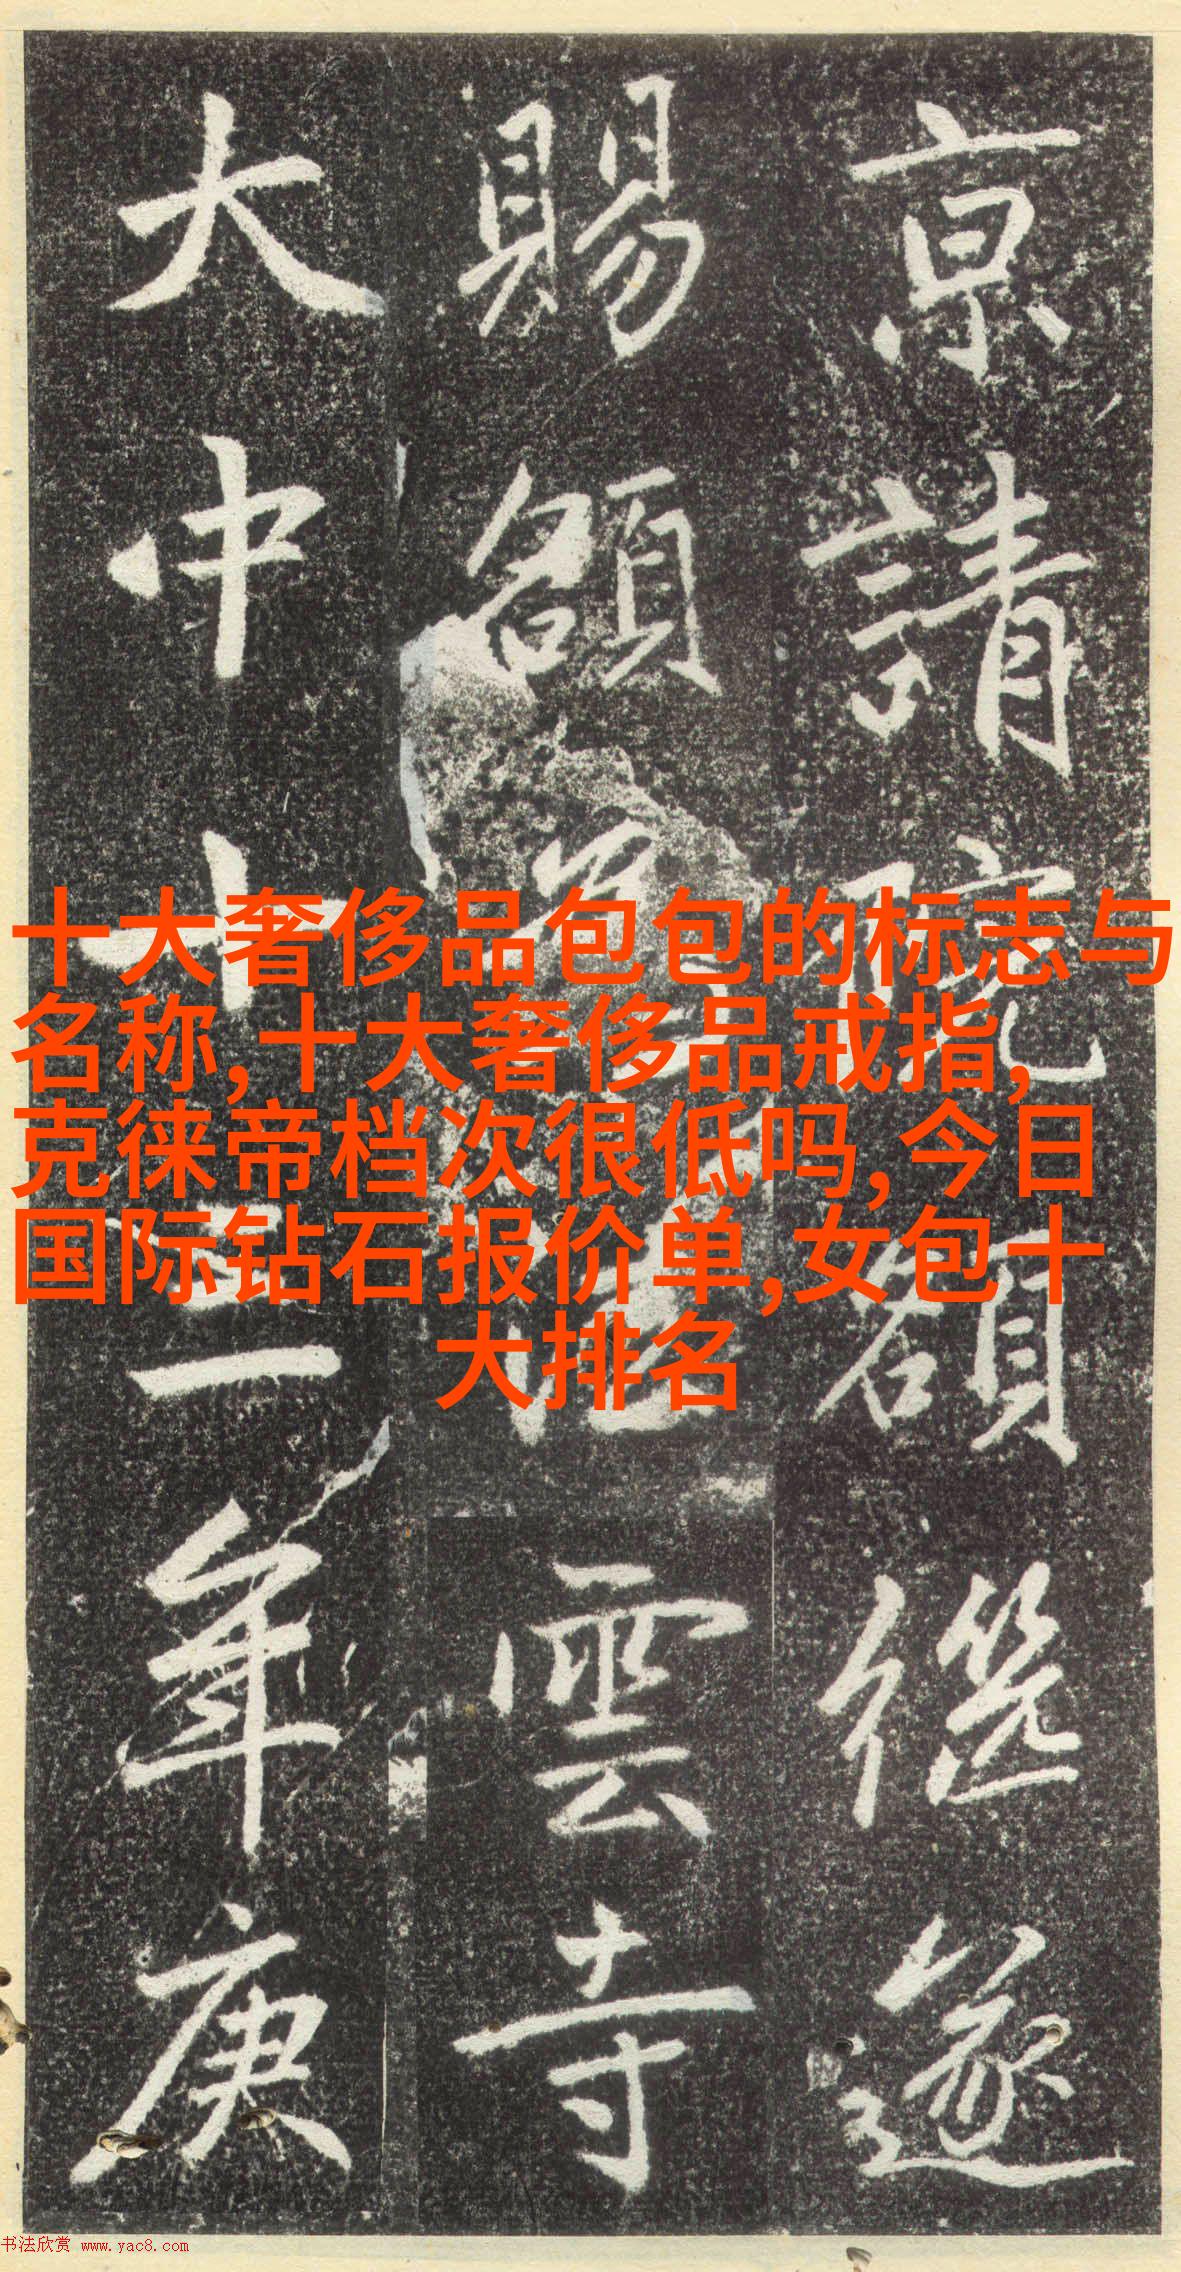 京請院額遂
賜額雲寺
大中十三年庚
十大奢侈品包包的标志与
名称,十大奢侈品戒指,
克徕帝档次很低吗,今日
国际钻石报价单,女包十
大排名
书法欣赏 www.yac8.com